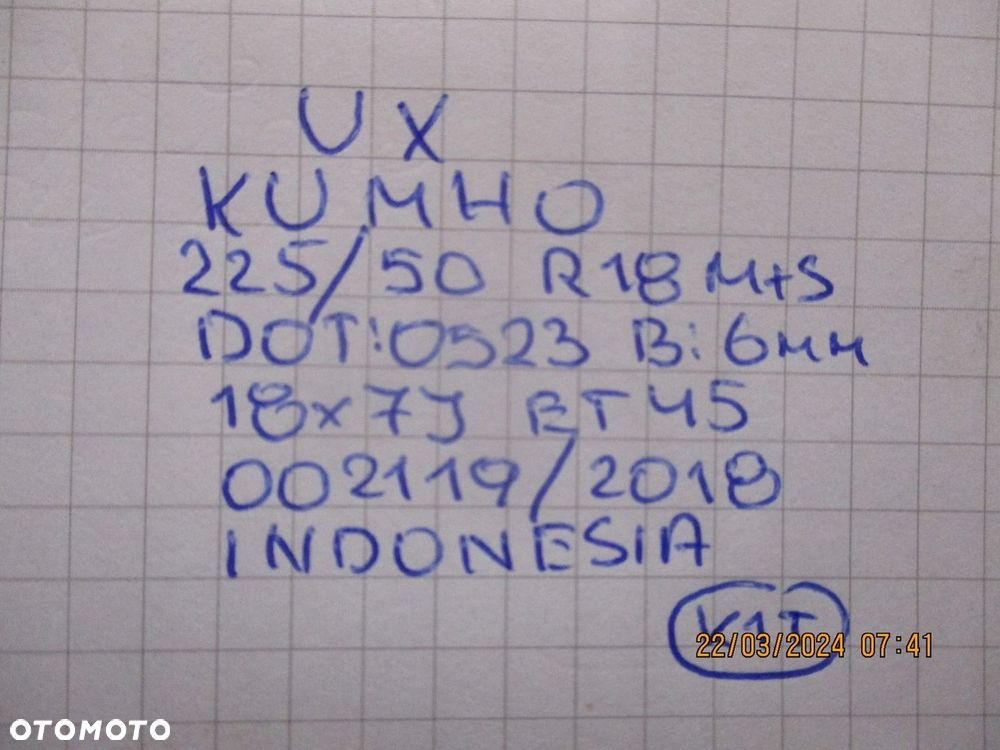 UX
KUMHO
225/50 R18 M+S
DOT:0523 B:6mm
18x7J ET45
002119/2018
INDONESIA
22/03/2024 07:41
OTOMOTO